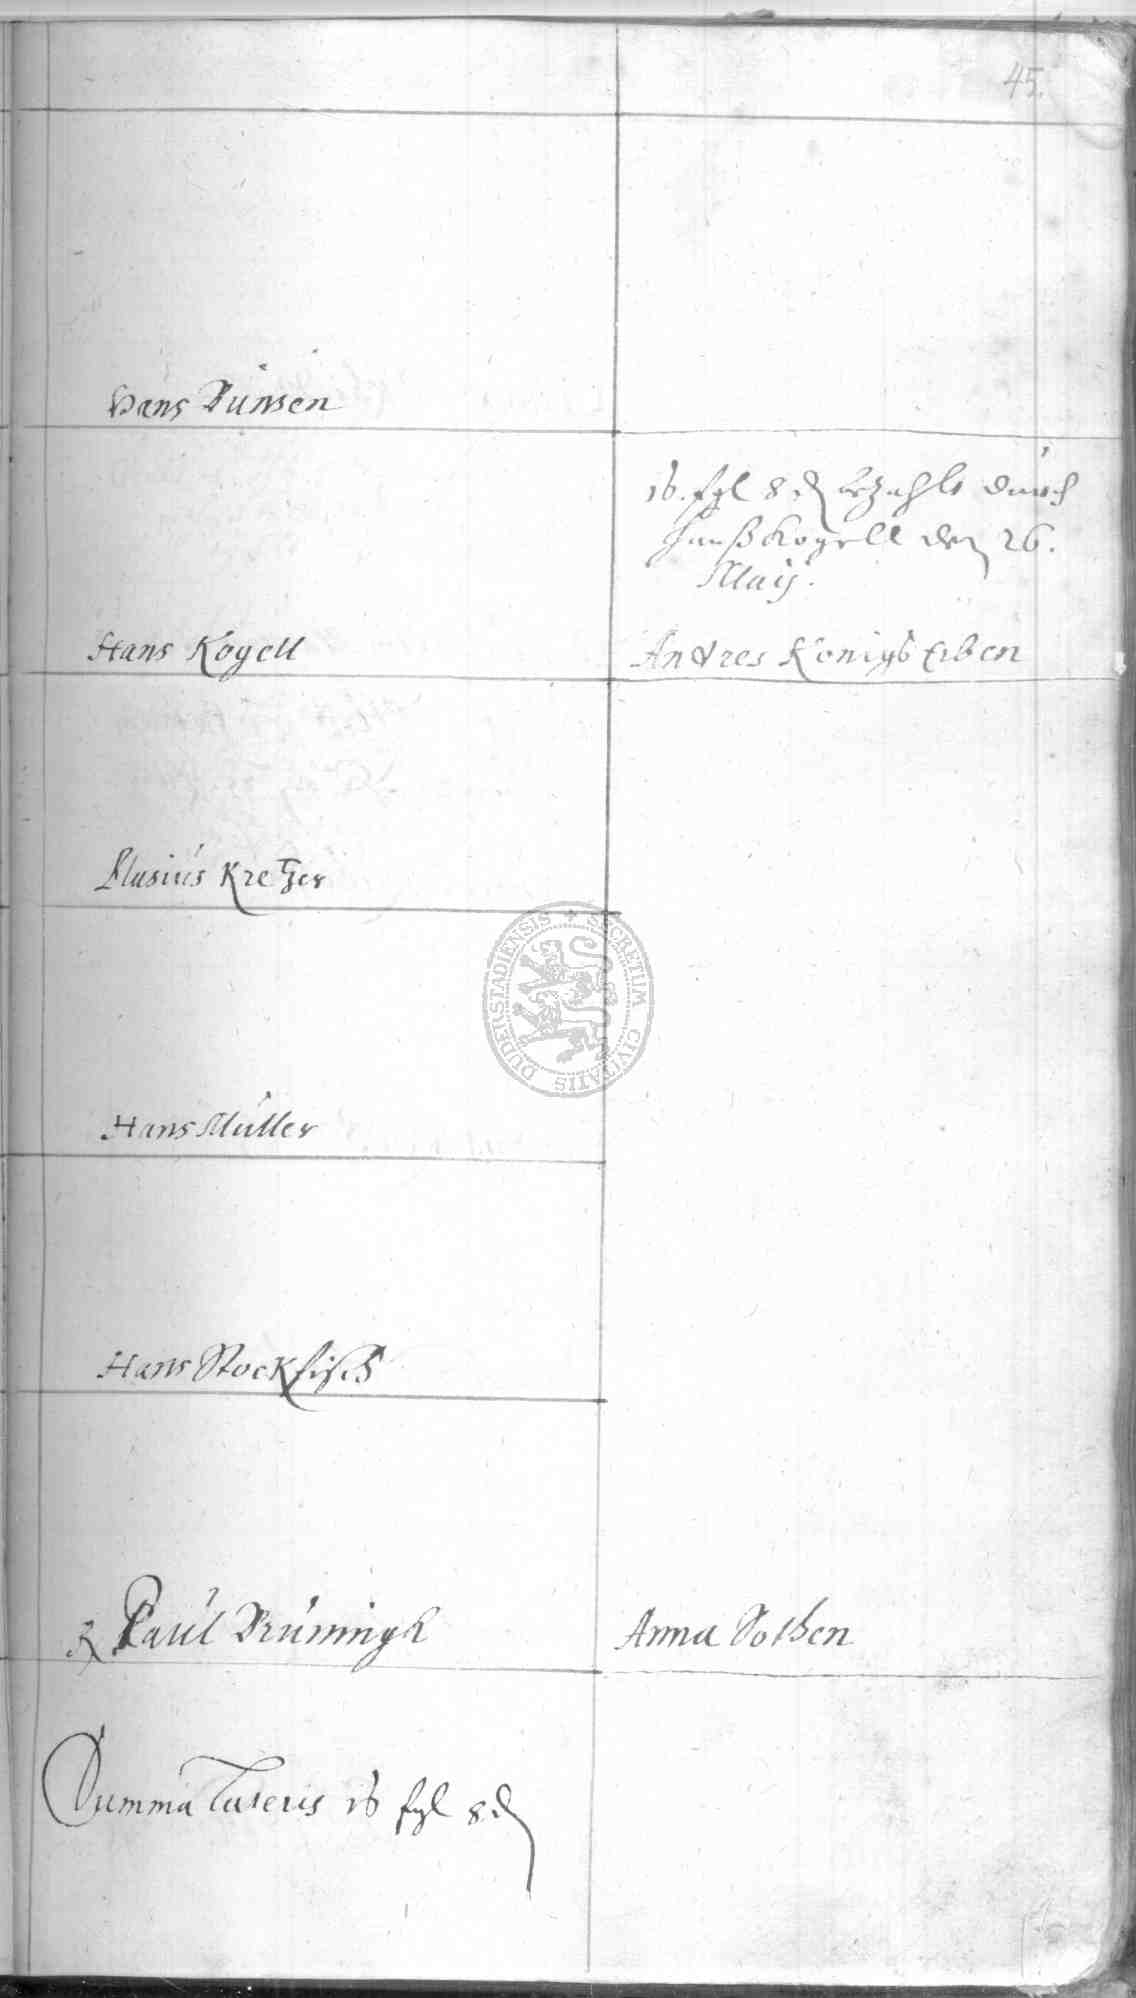 45.
Hans Bümsen
16. fgl 8 ₰ bezahlt durch
Hanß Kogell den 26.
Maij.
Hans Kogell
Andres Königs Erben
Blasius Kretzer
DUDERSTADIENSIS * SECRETUM CIVITATIS
Hans Müller
Hans Stockfisch
Paul Brüningk
Anna Sothen
Summa Lateris 16 fgl 8 ₰